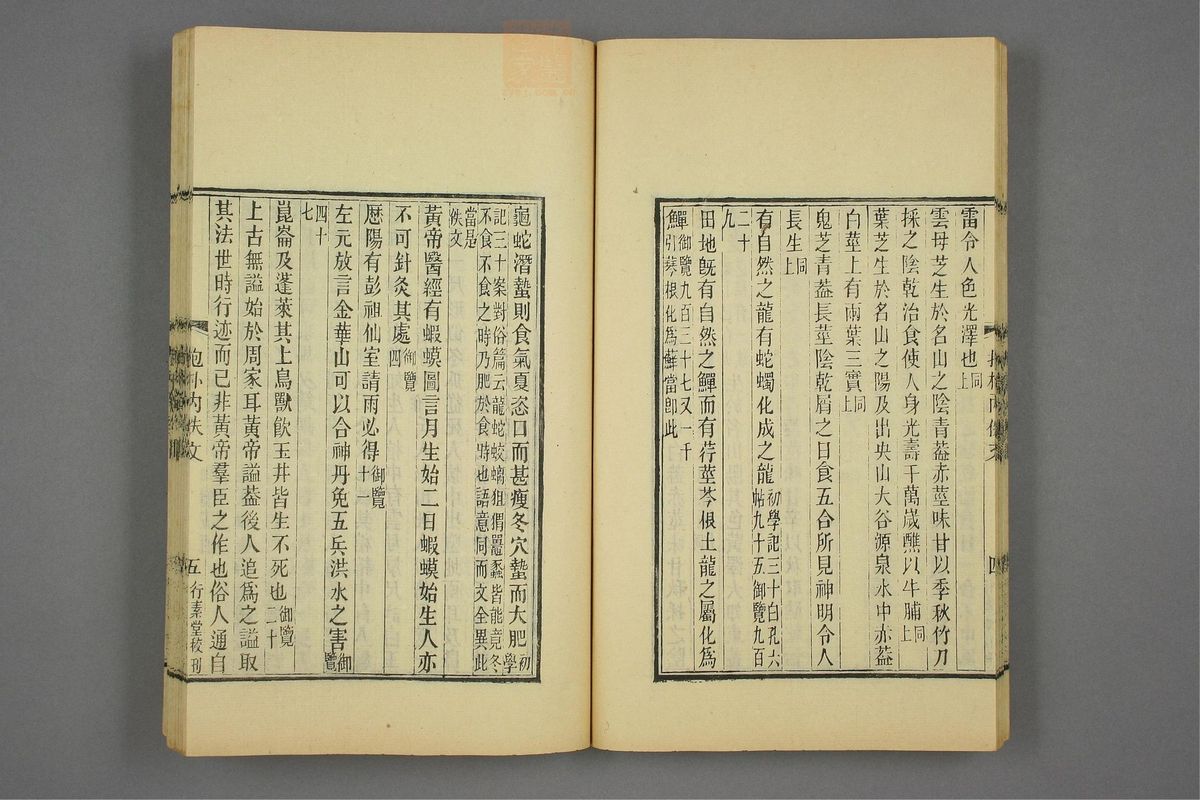 雷令人色光澤也同上
雲母芝生於名山之陰青葢赤莖味甘以季秋竹刀
採之陰乾治食使人身光壽千萬歲醮以牛脯同上
葉芝生於名山之陽及出央山大谷源泉水中赤葢
白莖上有兩葉三實同上
鬼芝青葢長莖陰乾屑之日食五合所見神明令人
長生同上
有自然之龍有蛇蠋化成之龍初學記三十白孔六帖九十五御覽九百
二十九
田地旣有自然之鱓而有荇莖芩根土龍之屬化爲
鱓御覽九百三十七又一千引荶根化爲鱓當卽此
四
龜蛇潛蟄則食氣夏恣口而甚瘦冬穴蟄而大肥初學
記三十案對俗篇云龍蛇蛟螭狙猬鼉蠡皆能竟冬不食不食之時乃肥於食時也語意同而文全異此
當是佚文
黃帝醫經有蝦蟆圖言月生始二日蝦蟆始生人亦
不可針灸其處御覽四
歷陽有彭祖仙室請雨必得御覽十一
左元放言金華山可以合神丹免五兵洪水之害御覽
四十七
崑崙及蓬萊其上鳥獸飮玉井皆生不死也御覽二十
上古無謚始於周家耳黃帝謚葢後人追爲之謚取
其法世時行迹而已非黃帝羣臣之作也俗人通自
抱朴內佚文
五
行素堂校刊